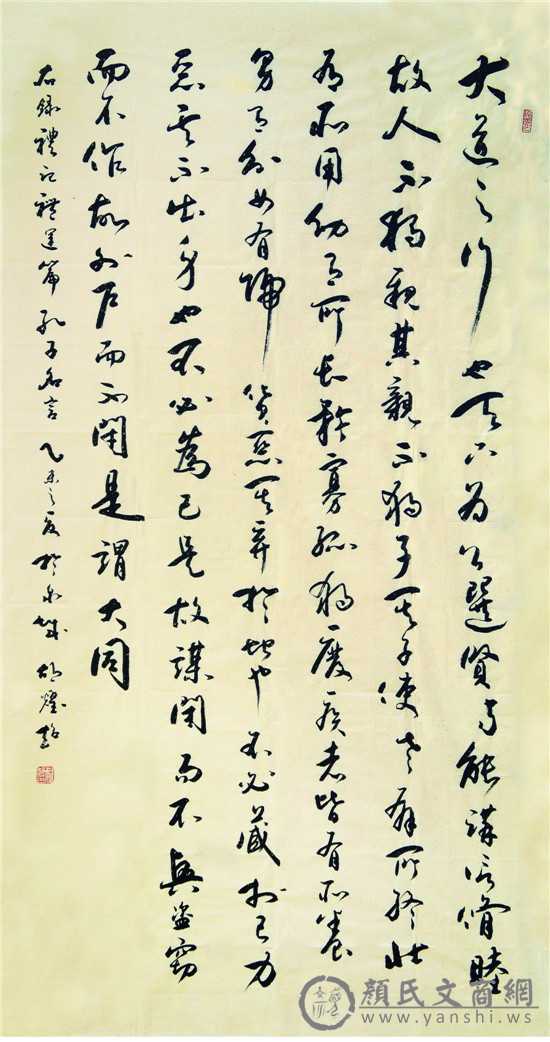 大道之行也天下为公選賢与能講信脩睦
故人不獨親其親不獨子其子使老有所終壯
有所用幼有所長矜寡孤獨廢疾者皆有所養
男有分女有歸貨惡其弃於地也不必藏於己力
惡其不出身也不必為己是故謀閉而不興盜竊
而不作故外户而不閉是謂大同
右錄禮記禮運篇孔子名言乙未之夏於泉城
顏氏文商網
www.yanshi.ws